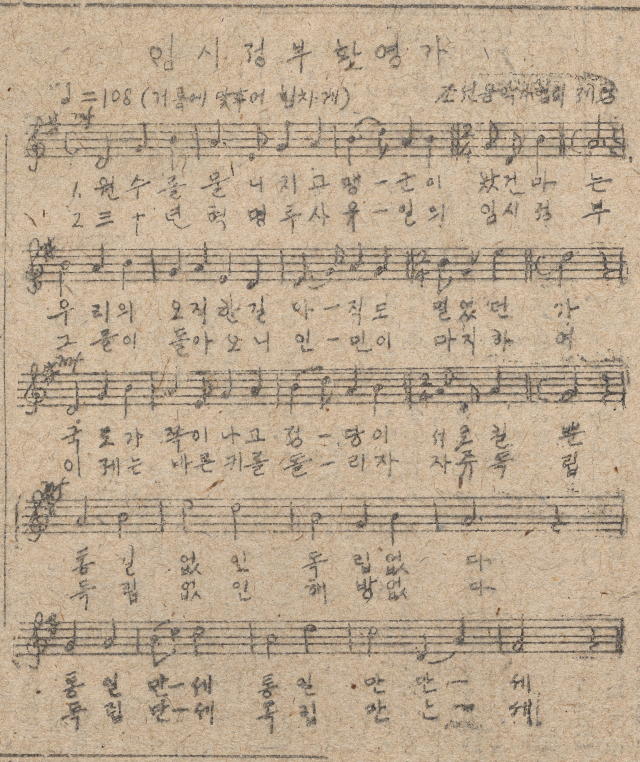 임시정부 환영가
♩=108 (거름에 맞추어 힘차게)
조선음악가협회 제공
1. 원수를 물니치고 맹-군이 왔건마는
2. 三十년 혁명투사 유-일의 임시정부
우리의 오직한길 아-직도 멀었던가
그들이 돌아오니 인-민이 마지하여
국토가 작이나고 정-당이 서로칠뿐
이제는 바른키를 돌-리자 자주독립
통일 없인 독립없다
독립 없인 해방없다
통일 만-세 통일 만만-세
독립 만-세 독립 만 세